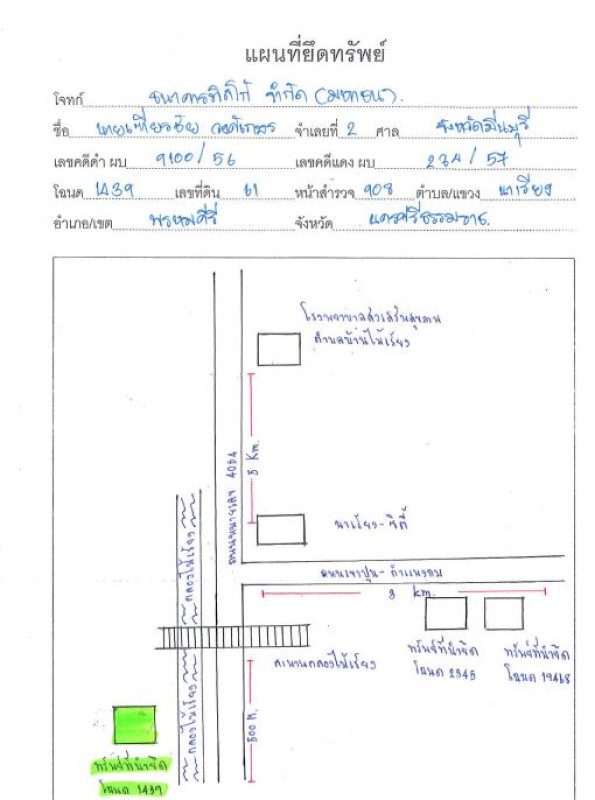 แผนที่ยึดทรัพย์
โจทก์ ธนาคารทิสโก้ จำกัด (มหาชน).
ชื่อ นายเทียรชัย จำเลยที่ 2 ศาล จังหวัดมีนบุรี
เลขคดีดำ ผบ 9100/56 เลขคดีแดง ผบ 234/57
โฉนด 1439 เลขที่ดิน 61 หน้าสำรวจ 908 ตำบล/แขวง นาเรียง
อำเภอ/เขต พรหมคีรี จังหวัด นครศรีธรรมราช.
โรงพยาบาลส่งเสริมสุขภาพ
ตำบลบ้านไม้เรียง
5 Km.
ถนนหมายเลข 4084
นาเรียง-ซิตี้
คลองไม้เรียง
ถนนเขาปูน-กำแพงถม
3 km.
สะพานคลองไม้เรียง
ทรัพย์ที่นำยึด
โฉนด 2345
ทรัพย์ที่นำยึด
โฉนด 19468
คลองไม้เรียง
500 M.
ทรัพย์ที่นำยึด
โฉนด 1439